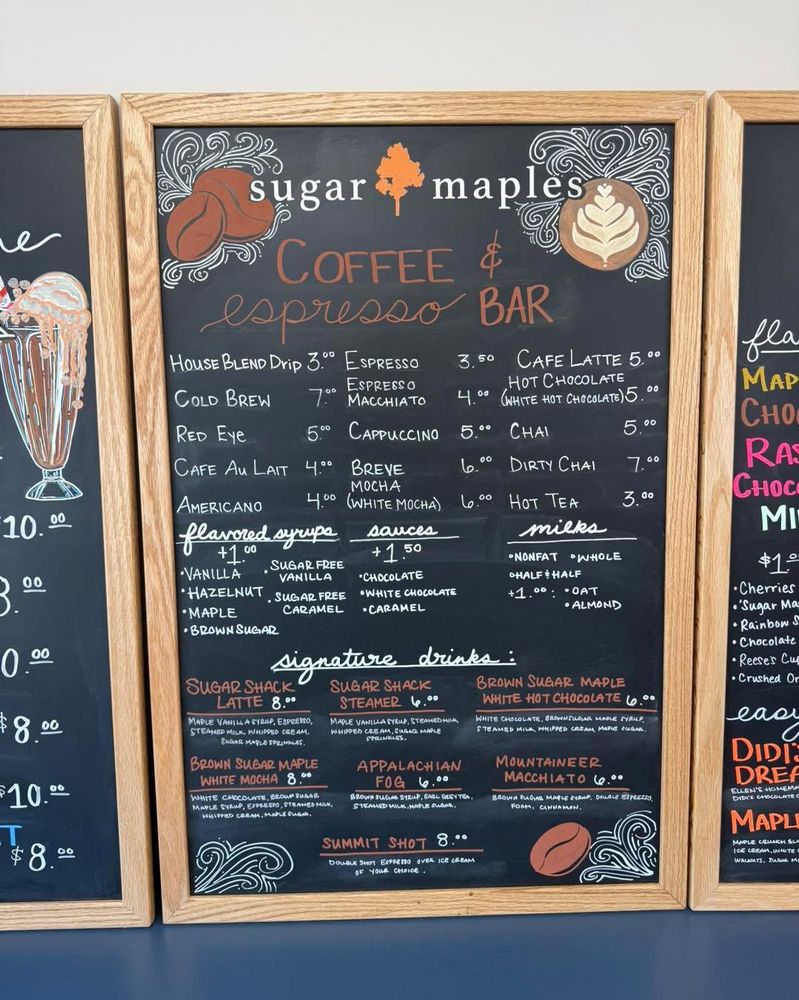 sugar maples
COFFEE &
espresso BAR
HOUSE BLEND DRIP 3.00
COLD BREW 7.00
RED EYE 5.00
CAFE AU LAIT 4.00
AMERICANO 4.00
ESPRESSO 3.50
ESPRESSO
MACCHIATO 4.00
CAPPUCCINO 5.00
BREVE 6.00
MOCHA
(WHITE MOCHA) 6.00
CAFE LATTE 5.00
HOT CHOCOLATE
(WHITE HOT CHOCOLATE) 5.00
CHAI 5.00
DIRTY CHAI 7.00
HOT TEA 3.00
flavored syrups
+1.00
•VANILLA
•HAZELNUT
•MAPLE
•BROWN SUGAR
•SUGAR FREE
VANILLA
•SUGAR FREE
CARAMEL
sauces
+1.50
•CHOCOLATE
•WHITE CHOCOLATE
•CARAMEL
milks
•NONFAT •WHOLE
•HALF & HALF
+1.00: •OAT
•ALMOND
signature drinks:
SUGAR SHACK
LATTE 8.00
MAPLE VANILLA SYRUP, ESPRESSO,
STEAMED MILK, WHIPPED CREAM,
SUGAR MAPLE SPRINKLES.
SUGAR SHACK
STEAMER 6.00
MAPLE VANILLA SYRUP, STEAMED MILK,
WHIPPED CREAM, SUGAR MAPLE
SPRINKLES.
BROWN SUGAR MAPLE
WHITE HOT CHOCOLATE 6.00
WHITE CHOCOLATE, BROWN SUGAR MAPLE SYRUP,
STEAMED MILK, WHIPPED CREAM, MAPLE SUGAR.
BROWN SUGAR MAPLE
WHITE MOCHA 8.00
WHITE CHOCOLATE, BROWN SUGAR
MAPLE SYRUP, ESPRESSO, STEAMED MILK,
WHIPPED CREAM, MAPLE SUGAR.
APPALACHIAN
FOG 6.00
BROWN SUGAR SYRUP, EARL GREY TEA,
STEAMED MILK, MAPLE SUGAR.
MOUNTAINEER
MACCHIATO 6.00
BROWN SUGAR MAPLE SYRUP, DOUBLE ESPRESSO,
FOAM, CINNAMON.
SUMMIT SHOT 8.00
DOUBLE SHOT ESPRESSO OVER ICE CREAM
OF YOUR CHOICE.
10.00
$8.00
$10.00
$8.00
$1.
• Cherries
• Sugar Ma
• Rainbow S
• Chocolate
• Reese's Cup
• Crushed Or
easy
DIDI'S
DREA
ELLEN'S HOMEM
DIDI'S CHOCOLATE
MAPLE
MAPLE CRUNCH
ICE CREAM, WHITE
WALNUTS, SUGAR